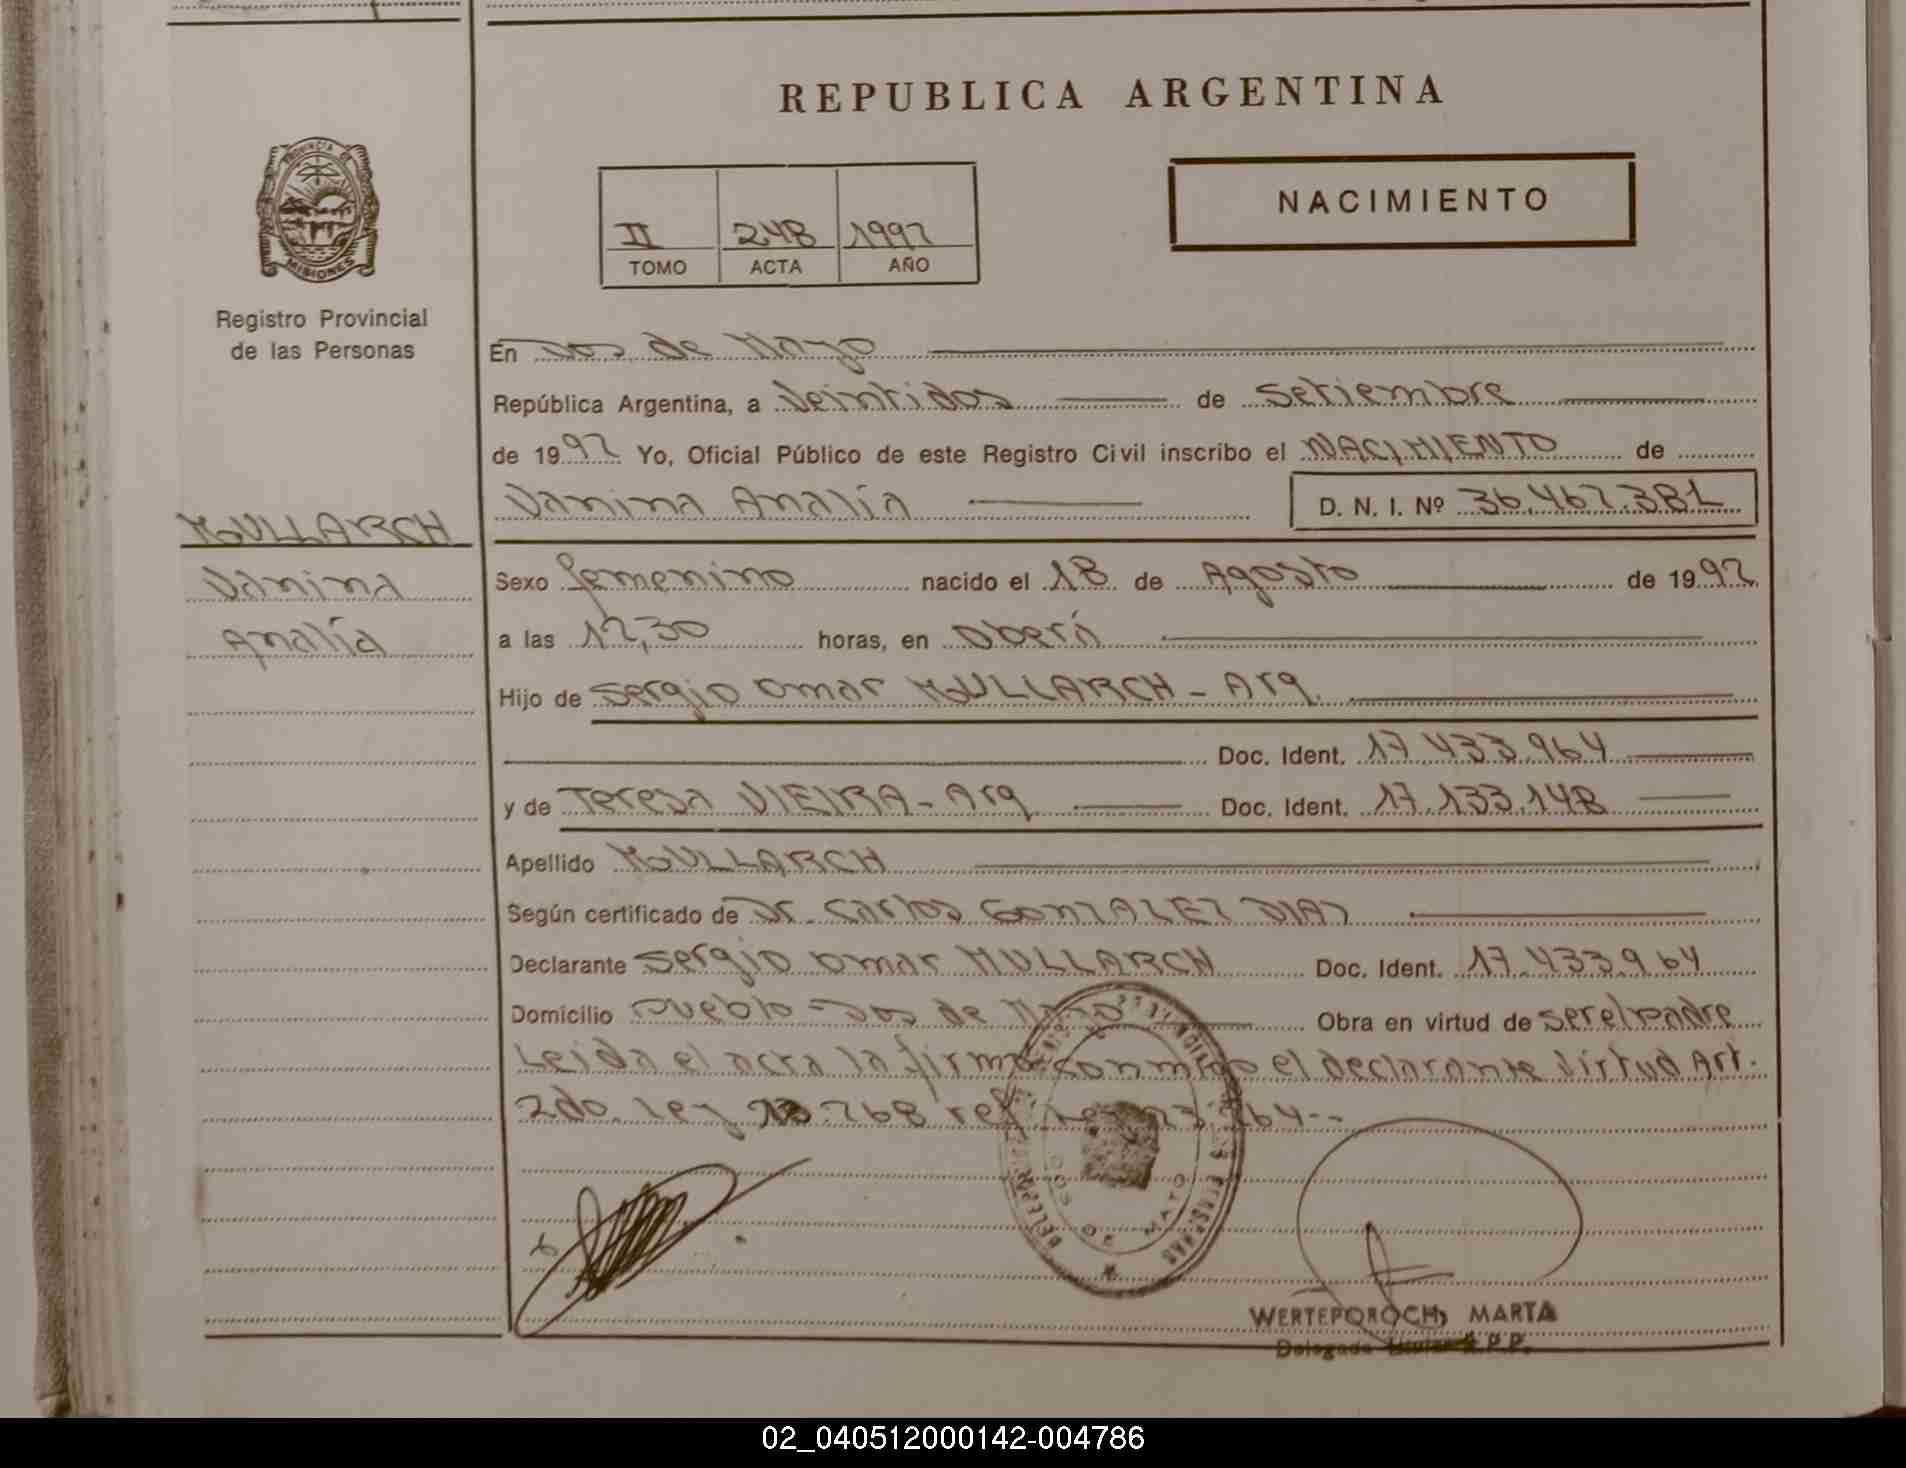 REPUBLICA ARGENTINA
PROVINCIA DE
MISIONES
Registro Provincial
de las Personas
II 248 1992
TOMO ACTA AÑO
NACIMIENTO
En Dos de Mayo
República Argentina, a Veintidos de Setiembre
de 1992 Yo, Oficial Público de este Registro Civil inscribo el NACIMIENTO de
Vanina Analía D. N. I. Nº 36.467.381
MULLARCH
Vanina
Analía
Sexo femenino nacido el 18 de Agosto de 1992
a las 12,30 horas, en Oberá
Hijo de Sergio Omar MULLARCH - Arg.
Doc. Ident. 17.433.964
y de Teresa VIEIRA - Arg Doc. Ident. 17.133.148
Apellido MULLARCH
Según certificado de Dr. Carlos GONZALEZ DIAZ
Declarante Sergio Omar MULLARCH Doc. Ident. 17.433.964
Domicilio Pueblo - Dos de Mayo Obra en virtud de ser el padre
Leida el acta la firma conmigo el declarante Virtud Art.
2do. Ley .268 ref. Ley 23.264--
DOS DE MAYO
WERTEPOROCH, MARTA
Delegada Titular R.P.P.
02_040512000142-004786